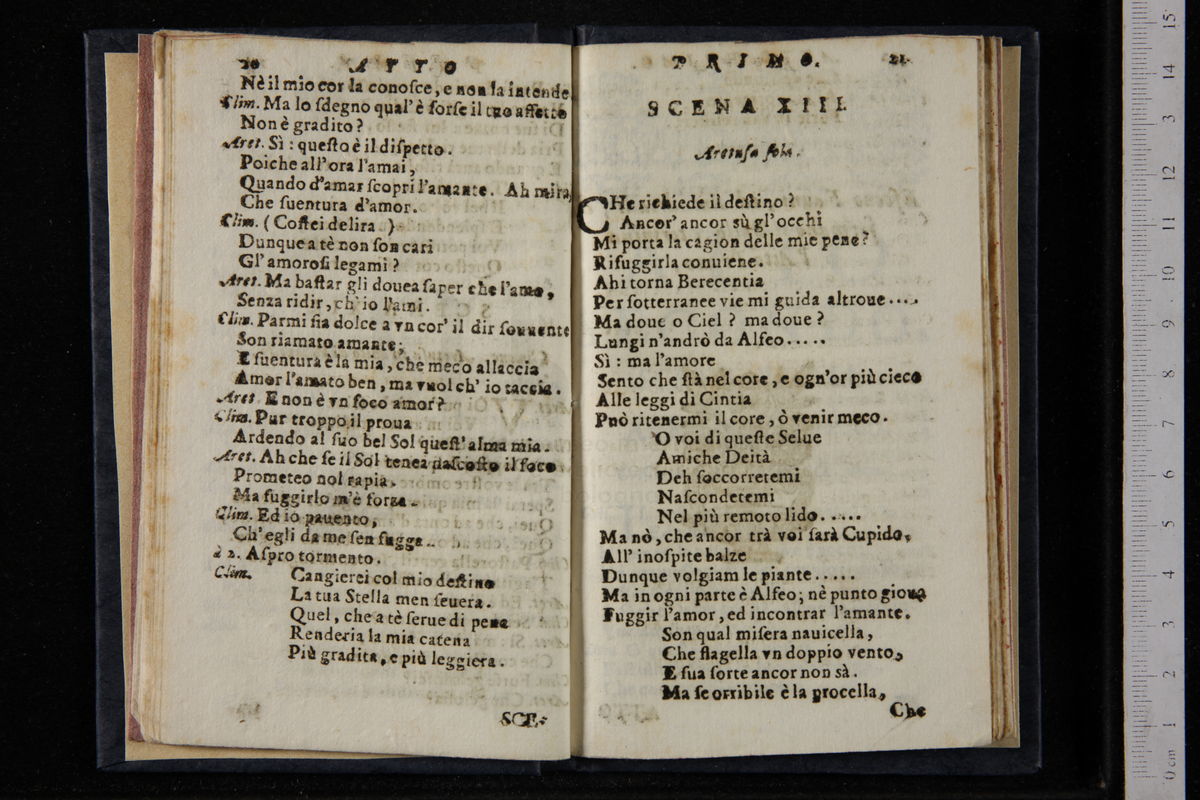 20 ATTO
Nè il mio cor la conoſce, e non la intende
Clim. Ma lo ſdegno qual'è forſe il tuo affetto
Non è gradito?
Aret. Sì: queſto è il diſpetto.
Poiche all'ora l'amai,
Quando d'amar ſcopri l'amante. Ah mira,
Che ſuentura d'amor.
Clim. (Coſtei delira)
Dunque a tè non ſon cari
Gl'amoroſi legami?
Aret. Ma baſtar gli douea ſaper che l'amo,
Senza ridir, ch'io l'ami.
Clim. Parmi ſia dolce a vn cor' il dir ſouuente
Son riamato amante;
E ſuentura è la mia, che meco allaccia
Amor l'amato ben, ma vuol ch'io taccia.
Aret. E non è vn foco amor?
Clim. Pur troppo il proua
Ardendo al ſuo bel Sol queſt'alma mia.
Aret. Ah che ſe il Sol tenea naſcoſto il foco
Prometeo nol rapia.
Ma fuggirlo m'è forza.
Clim. Ed io pauento,
Ch'egli da me ſen fugga.
à 2. Aſpro tormento.
Clim. Cangierei col mio deſtino
La tua Stella men ſeuera.
Quel, che a tè ſerue di pena
Renderia la mia catena
Più gradita, e più leggiera.
SCE-
PRIMO. 21
SCENA XIII.
Aretuſa ſola.
CHe richiede il deſtino?
Ancor' ancor sù gl'occhi
Mi porta la cagion delle mie pene?
Rifuggirla conuiene.
Ahi torna Berecentia
Per ſotterranee vie mi guida altroue....
Ma doue o Ciel? ma doue?
Lungi n'andrò da Alfeo.....
Sì: ma l'amore
Sento che ſtà nel core, e ogn'or più cieco
Alle leggi di Cintia
Può ritenermi il core, ò venir meco.
O voi di queſte Selue
Amiche Deità
Deh ſoccorretemi
Naſcondetemi
Nel più remoto lido.....
Ma nò, che ancor trà voi ſarà Cupido,
All' inoſpite balze
Dunque volgiam le piante.....
Ma in ogni parte è Alfeo; nè punto gioua
Fuggir l'amor, ed incontrar l'amante.
Son qual miſera nauicella,
Che flagella vn doppio vento,
E ſua ſorte ancor non sà.
Ma ſe orribile è la procella,
Che
15
14
13
12
11
10
9
8
7
6
5
4
3
2
1
0 cm